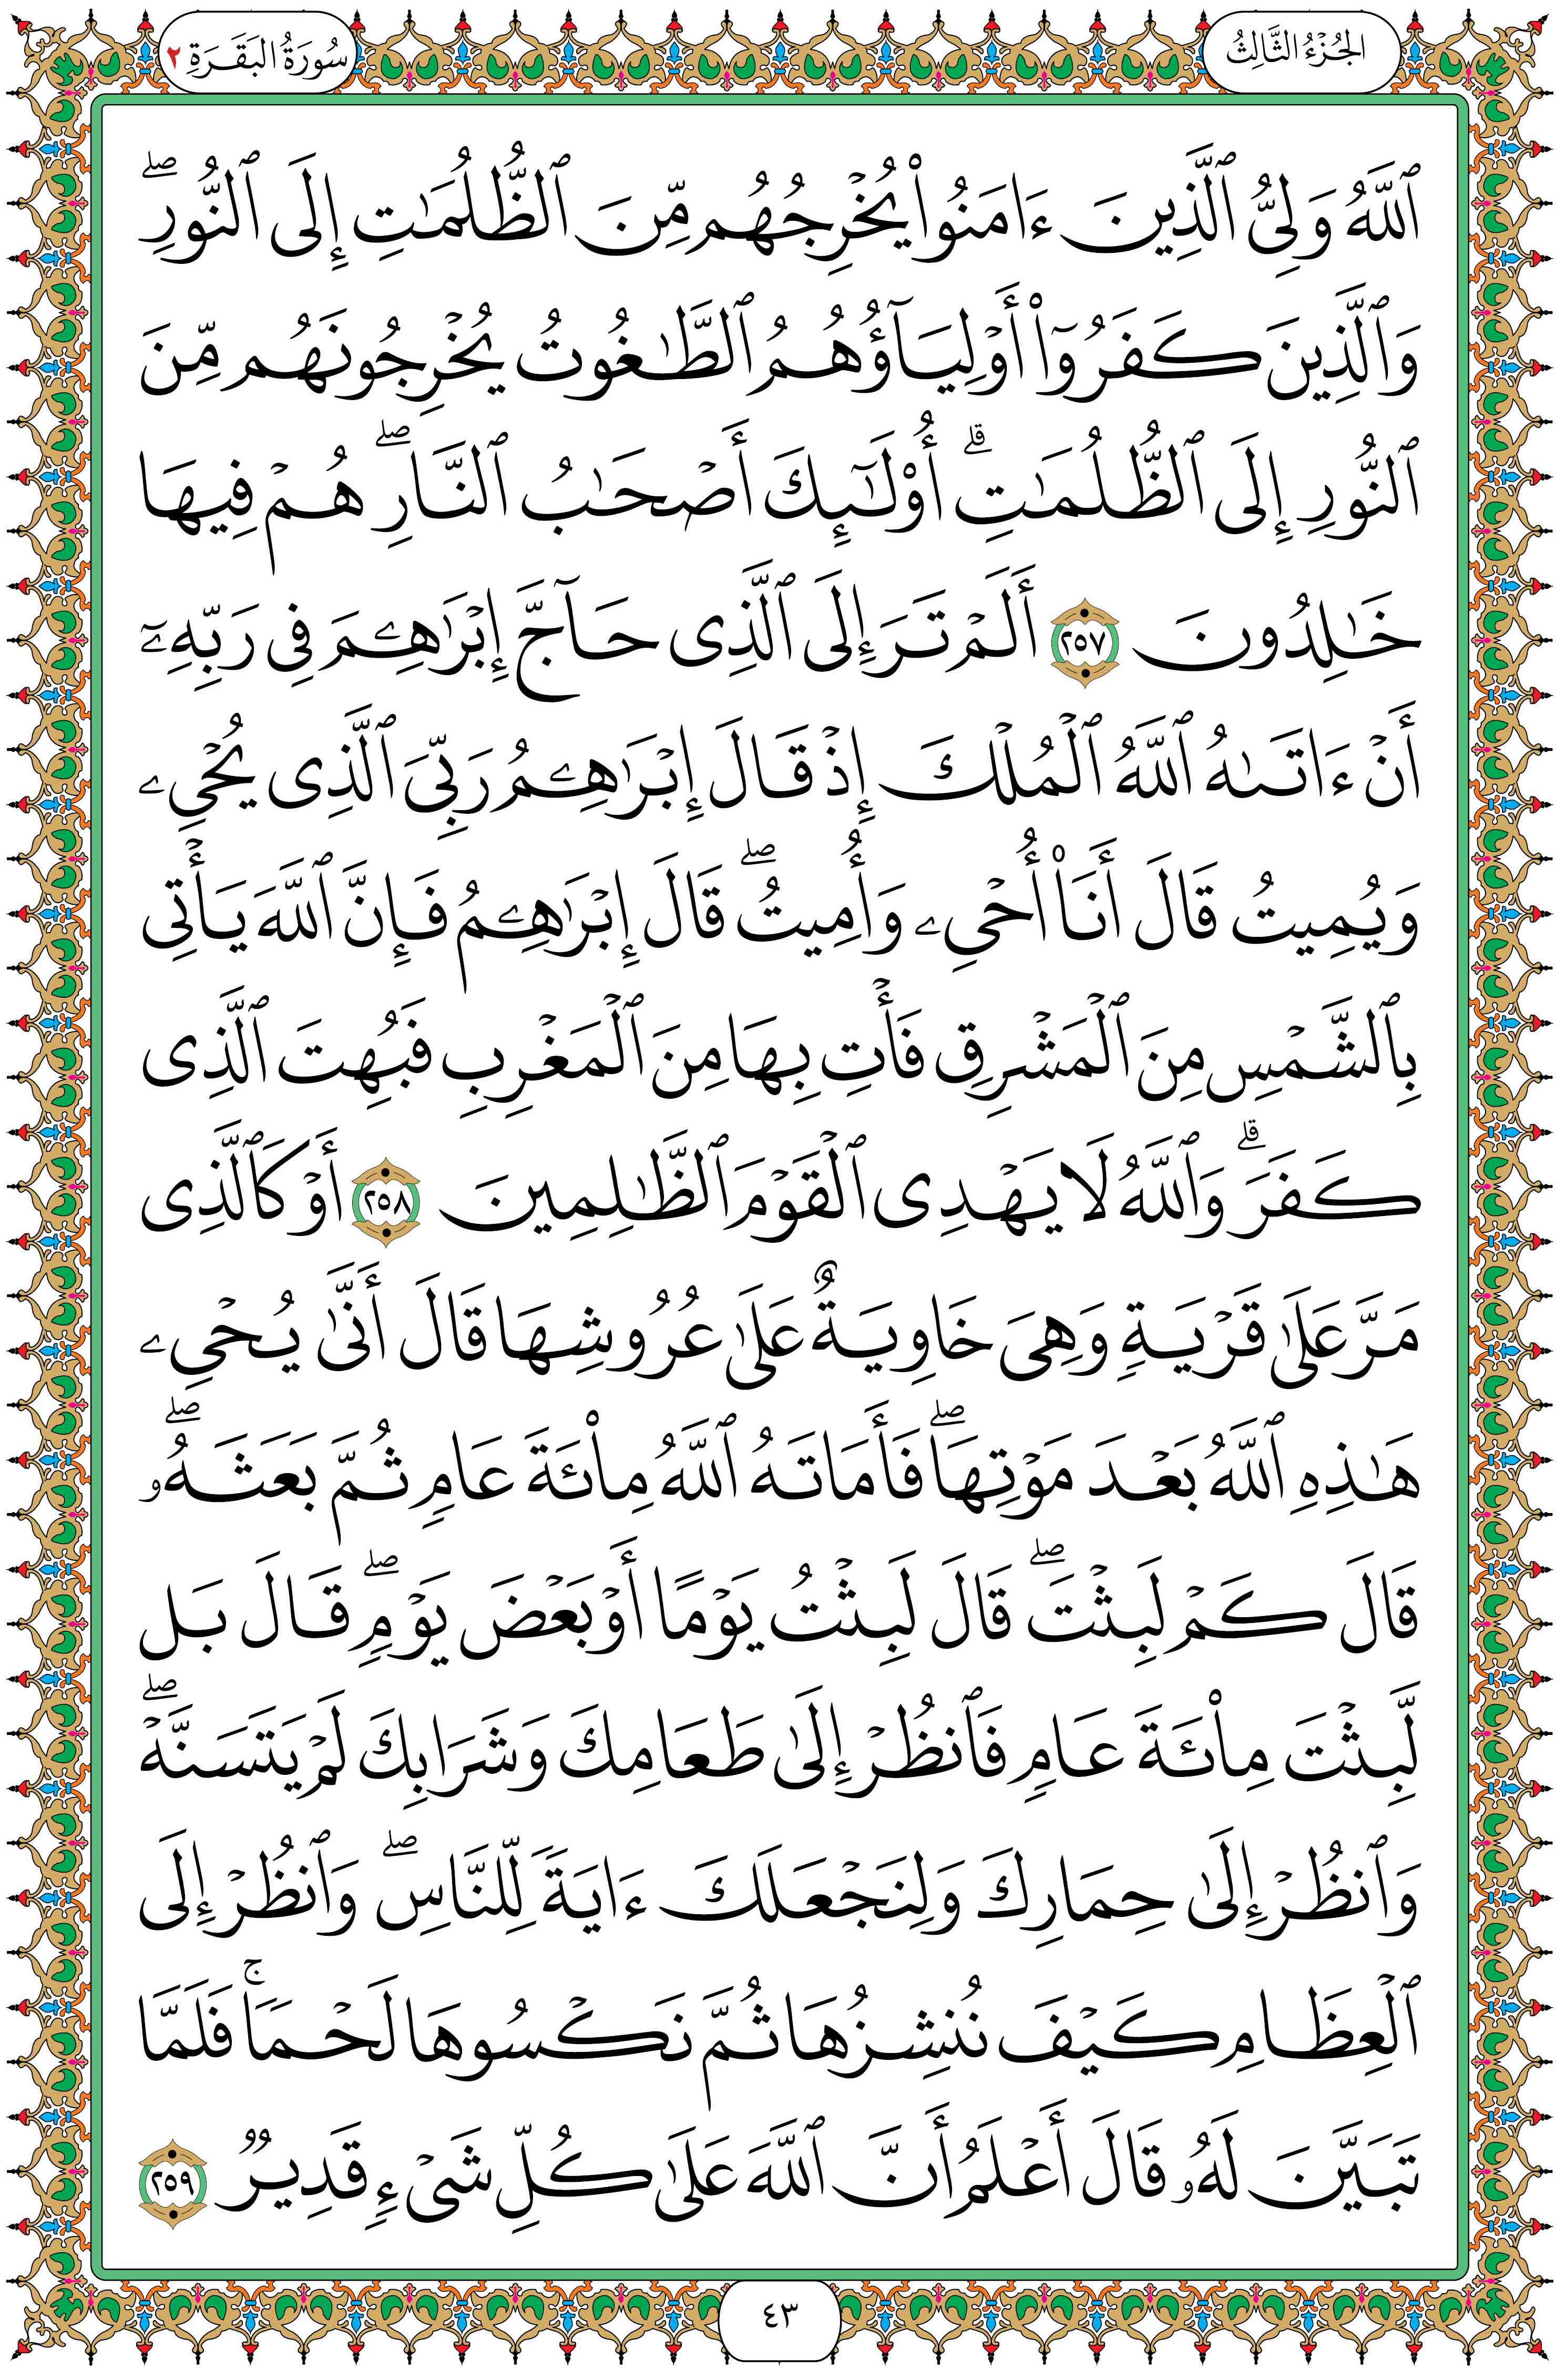 الجُزْءُ الثَّالِثُ
سُورَةُ البَقَرَةِ ٢
ٱللَّهُ وَلِىُّ ٱلَّذِينَ ءَامَنُوا۟ يُخْرِجُهُم مِّنَ ٱلظُّلُمَٰتِ إِلَى ٱلنُّورِ ۖ
وَٱلَّذِينَ كَفَرُوٓا۟ أَوْلِيَآؤُهُمُ ٱلطَّٰغُوتُ يُخْرِجُونَهُم مِّنَ
ٱلنُّورِ إِلَى ٱلظُّلُمَٰتِ ۗ أُو۟لَٰٓئِكَ أَصْحَٰبُ ٱلنَّارِ ۖ هُمْ فِيهَا
خَٰلِدُونَ ٢٥٧ أَلَمْ تَرَ إِلَى ٱلَّذِى حَآجَّ إِبْرَٰهِۦمَ فِى رَبِّهِۦٓ
أَنْ ءَاتَىٰهُ ٱللَّهُ ٱلْمُلْكَ إِذْ قَالَ إِبْرَٰهِۦمُ رَبِّىَ ٱلَّذِى يُحْىِۦ
وَيُمِيتُ قَالَ أَنَا۠ أُحْىِۦ وَأُمِيتُ ۖ قَالَ إِبْرَٰهِۦمُ فَإِنَّ ٱللَّهَ يَأْتِى
بِٱلشَّمْسِ مِنَ ٱلْمَشْرِقِ فَأْتِ بِهَا مِنَ ٱلْمَغْرِبِ فَبُهِتَ ٱلَّذِى
كَفَرَ ۗ وَٱللَّهُ لَا يَهْدِى ٱلْقَوْمَ ٱلظَّٰلِمِينَ ٢٥٨ أَوْ كَٱلَّذِى
مَرَّ عَلَىٰ قَرْيَةٍ وَهِىَ خَاوِيَةٌ عَلَىٰ عُرُوشِهَا قَالَ أَنَّىٰ يُحْىِۦ
هَٰذِهِ ٱللَّهُ بَعْدَ مَوْتِهَا ۖ فَأَمَاتَهُ ٱللَّهُ مِا۟ئَةَ عَامٍ ثُمَّ بَعَثَهُۥ ۖ
قَالَ كَمْ لَبِثْتَ ۖ قَالَ لَبِثْتُ يَوْمًا أَوْ بَعْضَ يَوْمٍ ۖ قَالَ بَل
لَّبِثْتَ مِا۟ئَةَ عَامٍ فَٱنظُرْ إِلَىٰ طَعَامِكَ وَشَرَابِكَ لَمْ يَتَسَنَّهْ ۖ
وَٱنظُرْ إِلَىٰ حِمَارِكَ وَلِنَجْعَلَكَ ءَايَةً لِّلنَّاسِ ۖ وَٱنظُرْ إِلَى
ٱلْعِظَامِ كَيْفَ نُنشِزُهَا ثُمَّ نَكْسُوهَا لَحْمًا ۚ فَلَمَّا
تَبَيَّنَ لَهُۥ قَالَ أَعْلَمُ أَنَّ ٱللَّهَ عَلَىٰ كُلِّ شَىْءٍ قَدِيرٌ ٢٥٩
٤٣